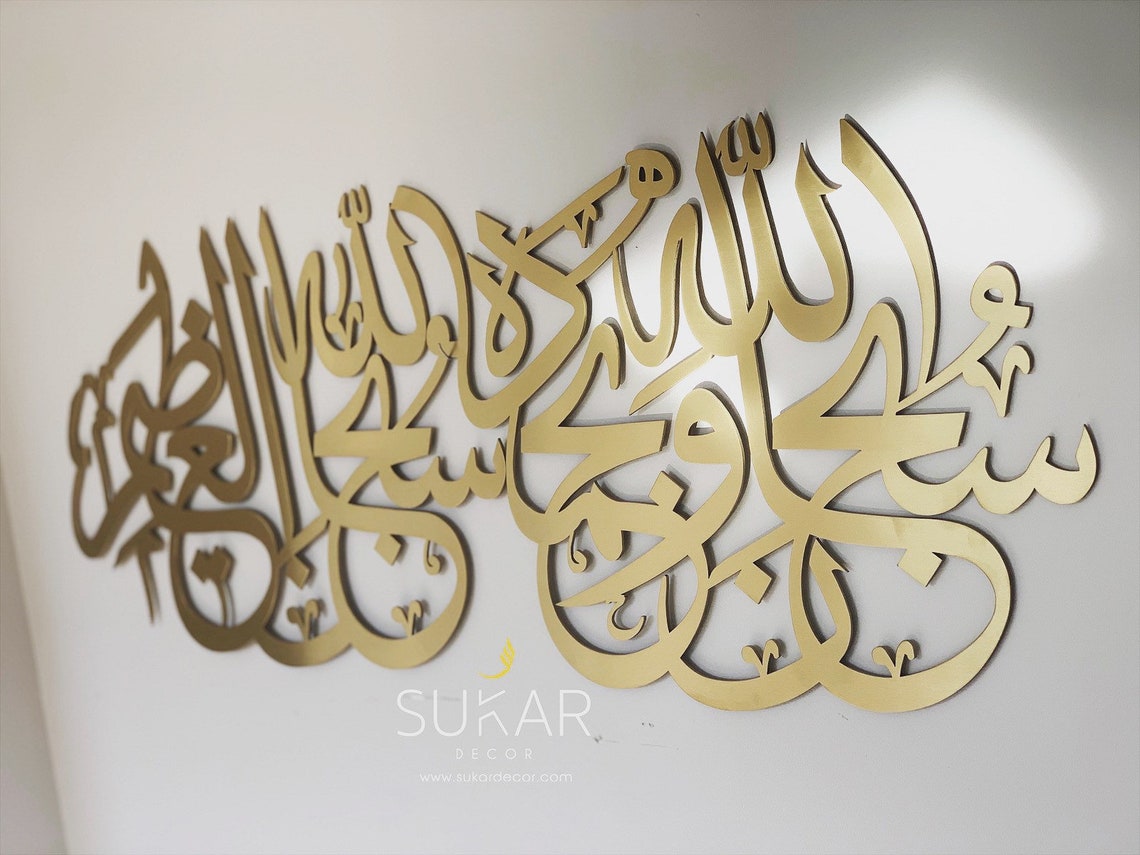 سُبْحَانَ اللّٰهِ وَبِحَمْدِهِ سُبْحَانَ اللّٰهِ الْعَظِيمِ
SUKAR
DECOR
www.sukardecor.com